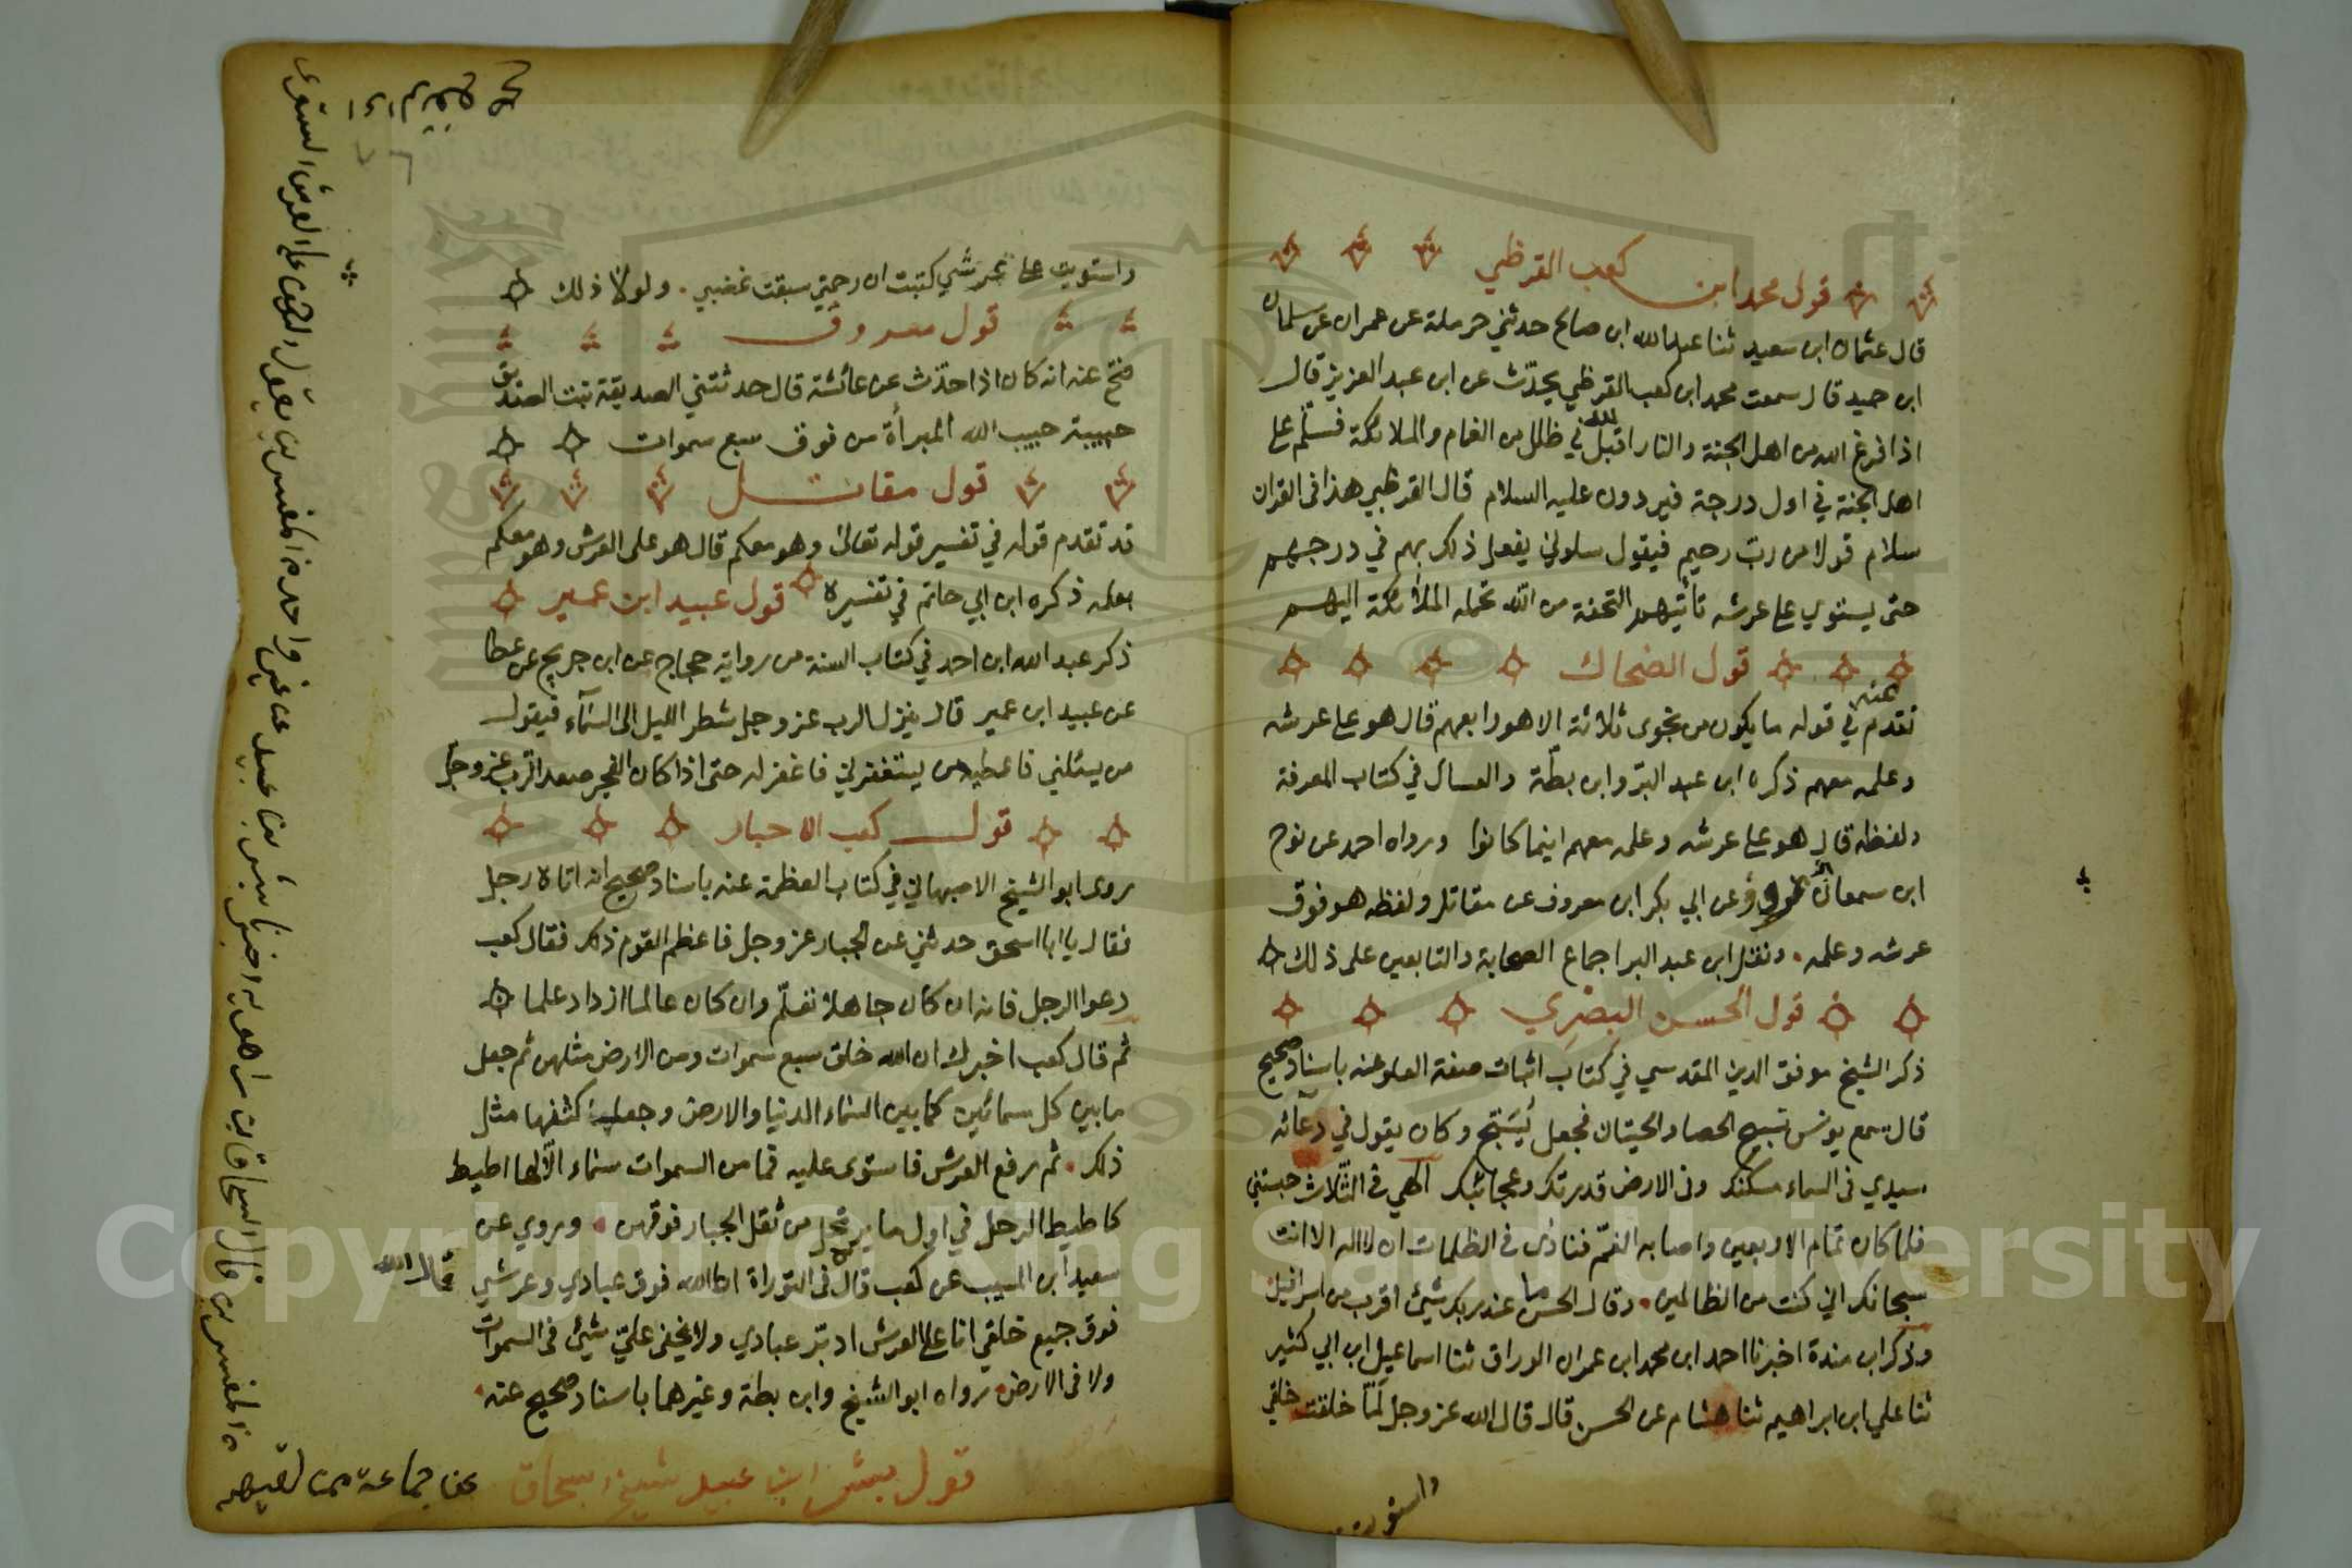 قول محمد ابن كعب القرظي
قال عثمان ابن سعيد ثنا عبد الله ابن صالح حدثني حرملة عن عمران عن سلمان
ابن حميد قال سمعت محمد ابن كعب القرظي يحدّث عن ابن عبد العزيز قال
اذا فرغ الله من اهل الجنة والنار اقبل الله في ظلل من الغمام والملائكة فسلّم على
اهل الجنة في اول درجة فيردون عليه السلام قال القرظي هذا فى القران
سلام قولا من ربّ رحيم فيقول سلوني يفعل ذلك بهم في درجهم
حتى يستوي على عرشه تأتيهم التحفة من الله تحمله الملائكة اليهم
قول الضحاك
تقدم عنه في قوله ما يكون من نجوى ثلاثة الا هو رابعهم قال هو على عرشه
وعلمه معهم ذكره ابن عبد البرّ وابن بطّة والعسال في كتاب المعرفة
ولفظه قال هو على عرشه وعلمه معهم اينما كانوا ورواه احمد عن نوح
ابن عن ابي بكر ابن معروف عن مقاتل ولفظه هو فوق
عرشه وعلمه . ونقل ابن عبد البر اجماع الصحابة والتابعين على ذلك
قول الحسن البصري
ذكر الشيخ موفق الدين المقدسي في كتاب اثبات صفة العلو عنه باسناد صحيح
قال سمع يونس تسبيح الحصا والحيتان فجعل يُسَبّح وكان يقول في دعآئه
سيدي فى السماء مسكنك وفى الارض قدرتك وعجائبك الٓهي فى الثلاث حبستني
فلما كان تمام الاربعين واصابه الغمّ فنادى فى الظلمات ان لا اله الا انت
سبحانك اني كنت من الظالمين . وقال الحسن ما عند ربك شيئ اقرب من اسرافيل
وذكر ابن مندة اخبرنا احمد ابن محمد ابن عمران الوراق ثنا اسماعيل ابن ابي كثير
ثنا علي ابن ابراهيم ثنا هشام عن الحسن قال قال الله عز وجل لَمّا خلقت خلقي
واستويت
واستويت على عرشي كتبت ان رحمتي سبقت غضبي . ولولا ذلك
قول مسروق
صح عنه انه كان اذا حدّث عن عائشة قال حدثتني الصديقة بنت الصديق
حبيبة حبيب الله المبرأة من فوق سبع سموات
قول مقاتل
قد تقدم قوله في تفسير قوله تعالى وهو معكم قال هو على العرش وهو معكم
بعلمه ذكره ابن ابي حاتم في تفسيره قول عبيد ابن عمير
ذكر عبد الله ابن احمد في كتاب السنة من رواية حجاج عن ابن جريج عن عطا
عن عبيد ابن عمير قال ينزل الرب عز وجل شطر الليل الى السّمآء فيقول
من يسئلني فاعطيه من يستغفرني فاغفر له حتى اذا كان الفجر صعد الرب عز وجل
قول كعب الاحبار
روى ابو الشيخ الاصبهاني في كتاب العظمة عنه باسناد صحيح انه اتاه رجل
فقال يا ابا اسحق حدثني عن الجبار عز وجل فاعظم القوم ذلك فقال كعب
دعوا الرجل فانه ان كان جاهلا تعلّم وان كان عالما ازداد علما
ثم قال كعب اخبرك ان الله خلق سبع سموات ومن الارض مثلهن ثم جعل
ما بين كل سمائين كما بين السماء الدنيا والارض وجعل كثفها مثل
ذلك . ثم رفع العرش فاستوى عليه فما من السموات سماء الّا لها اطيط
كاطيط الرحل في اول ما يرتحل من ثقل الجبار فوقهن . وروي عن
سعيد ابن المسيب عن كعب قال قال الله فى التوراة انا الله فوق عبادي وعرشي
فوق جميع خلقي انا على العرش ادبّر عبادي ولا يخفى عليّ شيئ فى السموات
ولا فى الارض . رواه ابو الشيخ وابن بطة وغيرهما باسناد صحيح عنه .
قول بشر ابن عبيد شيخ اسحاق
عن جماعة ممن لقيهم
من المفسرين قال اسحاق ابن راهويه اخبرنا بشر بن عبيد عن غير واحد من المفسرين يقول الرحمن على العرش استوى
Copyright © King Saud University